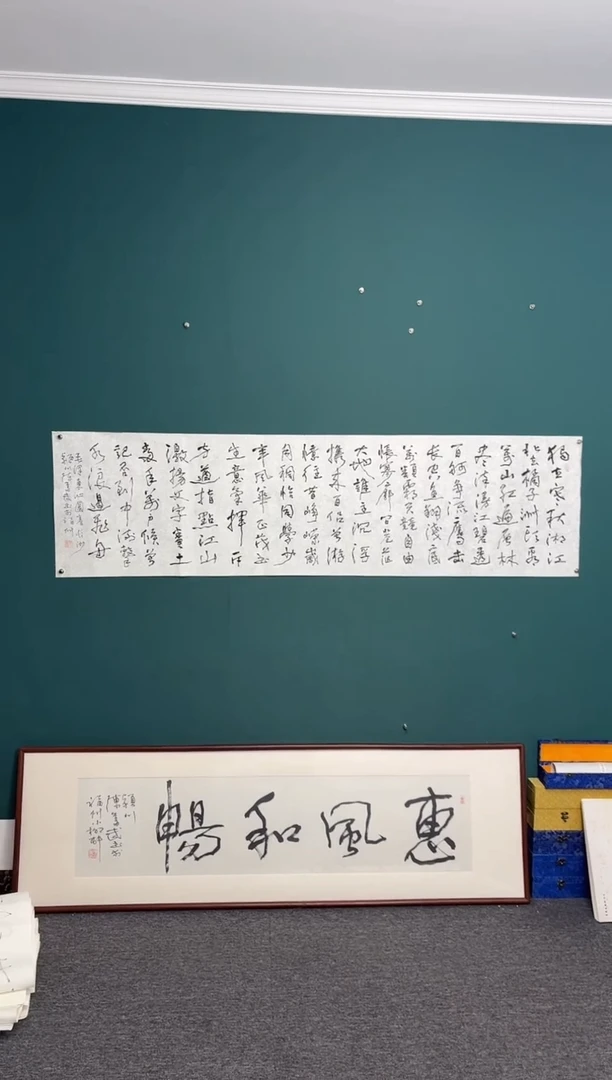 獨立寒秋湘江
北去橘子洲頭看
萬山紅遍層林
盡染漫江碧透
百舸争流鷹击
長空魚翔浅底
萬類霜天競自由
悵寥廓問蒼茫
大地誰主沉浮
攜来百侣曾游
憶往昔崢嶸歲
月稠恰同學少
年風華正茂书
生意氣揮斥
方遒指點江山
激揚文字糞土
當年萬户侯曾
記否到中流擊
水浪遏飛舟
毛澤東沁園春長沙
惠風和暢